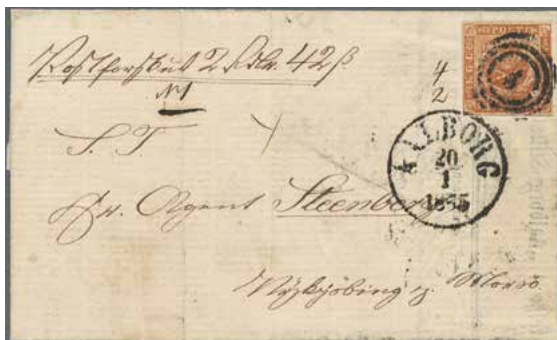 Postforskud 2 Rdlr. 42 ß
4
2
N1
S. T.
AALBORG
20
1
1855
Hr. Agent Steenberg
Nykjöbing p. Morsö